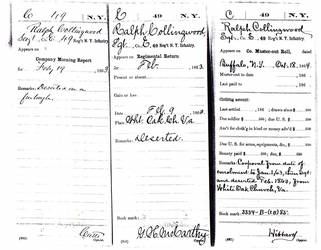 Co 49 N.Y.
Ralph Collingwood
Sgt, Co. E, 49 Reg't N.Y. Infantry.
Appears on
Company Morning Report
Feby 19, 1863
Remarks: Deserted on a
furlough.
Copyist.
E 49 N.Y.
Ralph Collingwood
Sgt., Co. E, 49 Reg't N.Y. Infantry.
Appears on
Regimental Return
for Feb., 1863.
Present or absent
Gain or loss
Date Feb 9, 1863.
Place White Oak Ch. Va
Remarks: Deserted.
Book mark:
G. H. McCarthy
Copyist.
C 49 N.Y.
Ralph Collingwood
Sgt., Co. E, 49 Reg't N.Y. Infantry.
Appears on Co. Muster-out Roll, dated
Buffalo, N.Y. Oct. 18, 1864.
Muster-out to date, 186
Last paid to, 186
Clothing account:
Last settled, 186 ; drawn since $ 100
Due soldier $ 100; due U.S. $ 100
Am't for cloth'g in kind or money adv'd $ 100
Due U.S. for arms, equipments, &c., $ 100
Bounty paid $ 100; due $ 100
Remarks: Corporal from date of
enrolment to Jan 1/63, then Sgt.
and deserted Feb. 1863, from
White Oak Church, Va.
Book mark: 3334-B-(1)885
Hibbard
Copyist.